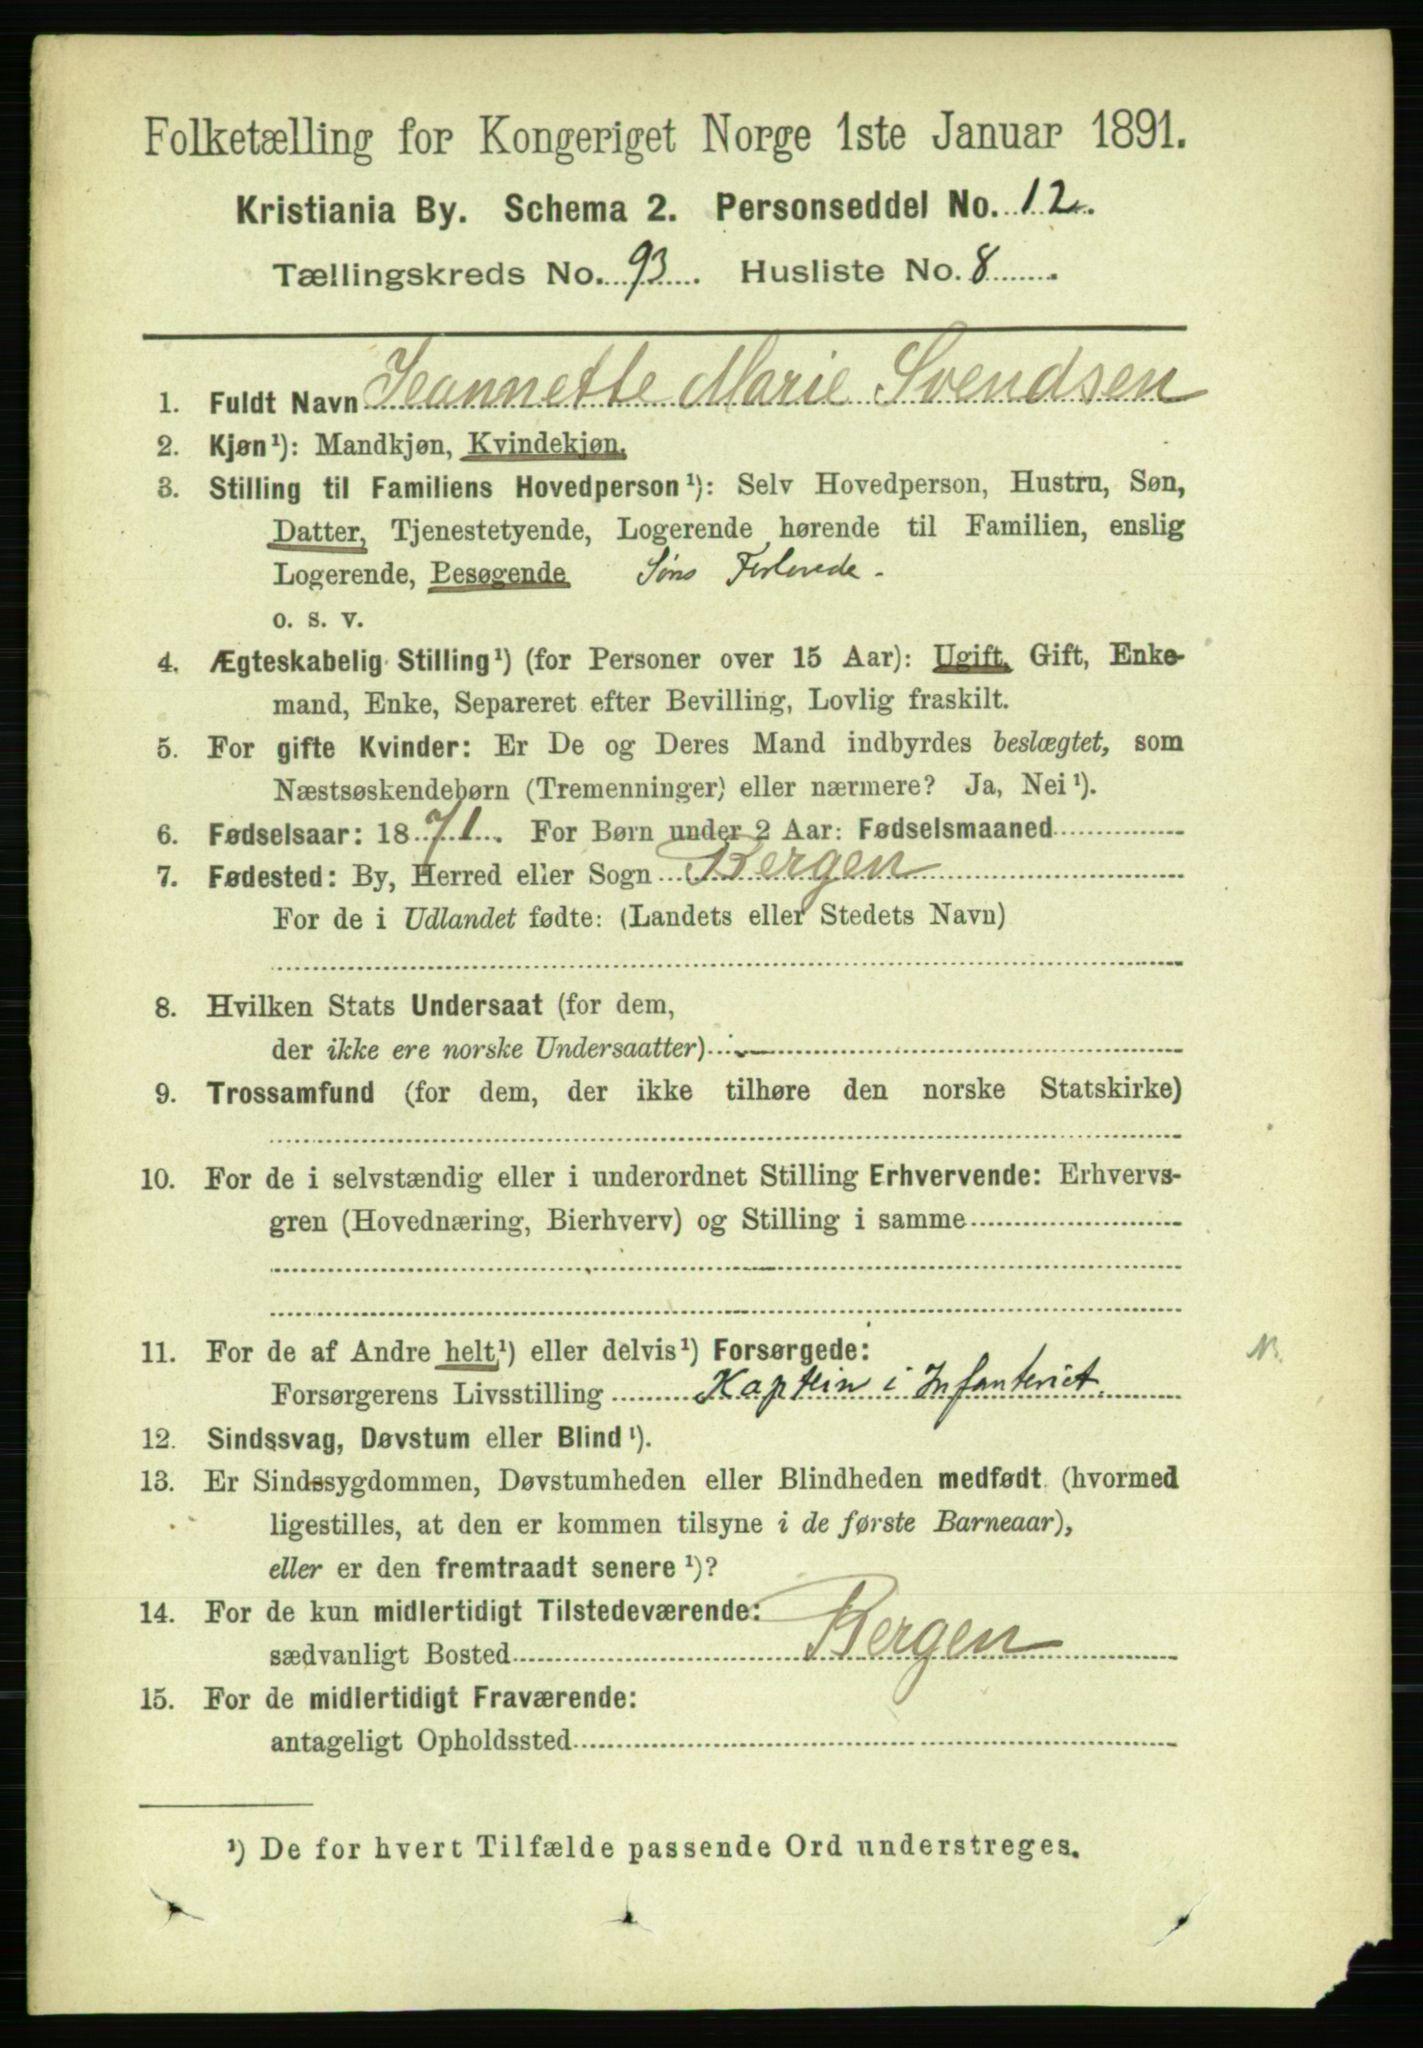 Folketælling for Kongeriget Norge 1ste Januar 1891.
Kristiania By. Schema 2. Personseddel No. 12.
Tællingskreds No. 93. Husliste No. 8.
1. Fuldt Navn Jeannette Marie Svendsen
2. Kjøn¹): Mandkjøn, Kvindekjøn.
3. Stilling til Familiens Hovedperson¹): Selv Hovedperson, Hustru, Søn,
Datter, Tjenestetyende, Logerende hørende til Familien, enslig
Logerende, Besøgende Søns Forlovede.
o. s. v.
4. Ægteskabelig Stilling¹) (for Personer over 15 Aar): Ugift, Gift, Enke-
mand, Enke, Separeret efter Bevilling, Lovlig fraskilt.
5. For gifte Kvinder: Er De og Deres Mand indbyrdes beslægtet, som
Næstsøskendebørn (Tremenninger) eller nærmere? Ja, Nei¹).
6. Fødselsaar: 1871. For Børn under 2 Aar: Fødselsmaaned
7. Fødested: By, Herred eller Sogn Bergen
For de i Udlandet fødte: (Landets eller Stedets Navn)
8. Hvilken Stats Undersaat (for dem,
der ikke ere norske Undersaatter)
9. Trossamfund (for dem, der ikke tilhøre den norske Statskirke)
10. For de i selvstændig eller i underordnet Stilling Erhvervende: Erhvervs-
gren (Hovednæring, Bierhverv) og Stilling i samme
11. For de af Andre helt¹) eller delvis¹) Forsørgede:
Forsørgerens Livsstilling Kaptein i Infanteriet.
12. Sindssvag, Døvstum eller Blind¹).
13. Er Sindssygdommen, Døvstumheden eller Blindheden medfødt (hvormed
ligestilles, at den er kommen tilsyne i de første Barneaar),
eller er den fremtraadt senere¹)?
14. For de kun midlertidigt Tilstedeværende:
sædvanligt Bosted Bergen
15. For de midlertidigt Fraværende:
antageligt Opholdssted
¹) De for hvert Tilfælde passende Ord understreges.